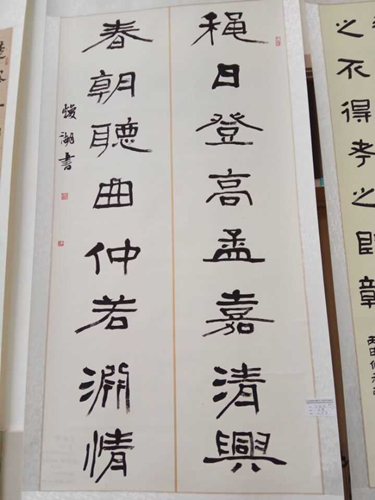 穐日登高孟嘉清興
春朝聽曲仲若淵情
湖書
之不得孝之即章